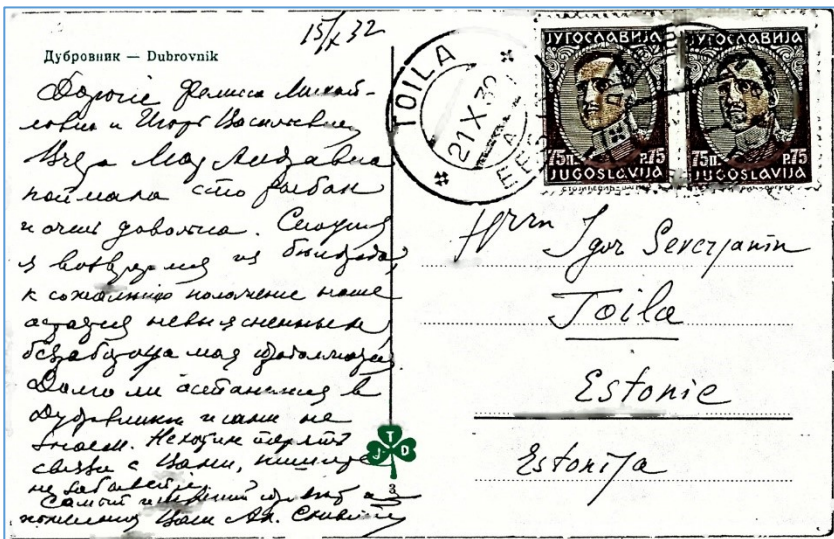 15/X 32
Дубровник — Dubrovnik
Дорогие Фелисса Михай-
ловна и Игорь Васильевич
Вчера моя
поймала сто рыбак
и очень довольна. Сегодня
я возвратился из Белграда,
к сожалению положение наше
невыясненным
моя
Долго ли останемся в
Дубровнике и сами не
знаем. Не хотим терять
связи с Вами, пишите
не забывайте.
Самый привет
Ваш Ал.
TOILA
21 X 32
A
EESTI
ЈУГОСЛАВИЈА
75п P.75
JUGOSLAVIJA
ЈУГОСЛАВИЈА
75п P.75
JUGOSLAVIJA
Herrn Igor Severjanin
Toila
Estonie
Estonija
T
J D
3